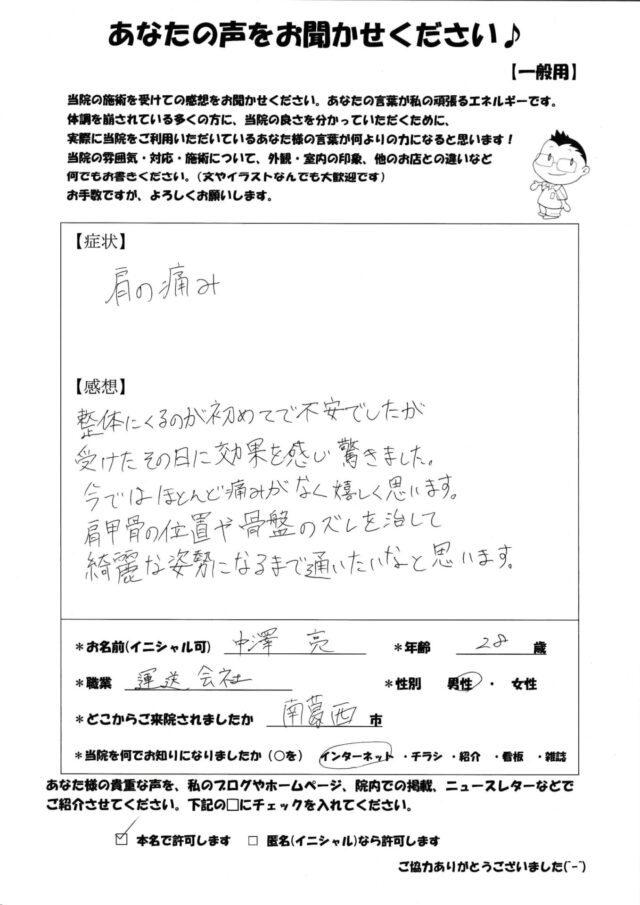 あなたの声をお聞かせください♪
【一般用】
当院の施術を受けての感想をお聞かせください。あなたの言葉が私の頑張るエネルギーです。
体調を崩されている多くの方に、当院の良さを分かっていただくために、
実際に当院をご利用いただいているあなた様の言葉が何よりの力になると思います！
当院の雰囲気・対応・施術について、外観・室内の印象、他のお店との違いなど
何でもお書きください。（文やイラストなんでも大歓迎です）
お手数ですが、よろしくお願いします。
【症状】
肩の痛み
【感想】
整体にくるのが初めてで不安でしたが
受けたその日に効果を感じ驚きました。
今ではほとんど痛みがなく嬉しく思います。
肩甲骨の位置や骨盤のズレを治して
綺麗な姿勢になるまで通いたいなと思います。
*お名前(イニシャル可) 中澤 亮 *年齢 28 歳
*職業 運送会社 *性別 男性 ・ 女性
*どこからご来院されましたか 南葛西 市
*当院を何でお知りになりましたか（○を） インターネット ・チラシ ・紹介 ・看板 ・雑誌
あなた様の貴重な声を、私のブログやホームページ、院内での掲載、ニュースレターなどで
ご紹介させてください。下記の□にチェックを入れてください。
☑ 本名で許可します □ 匿名(イニシャル)なら許可します
ご協力ありがとうございました(^-^)